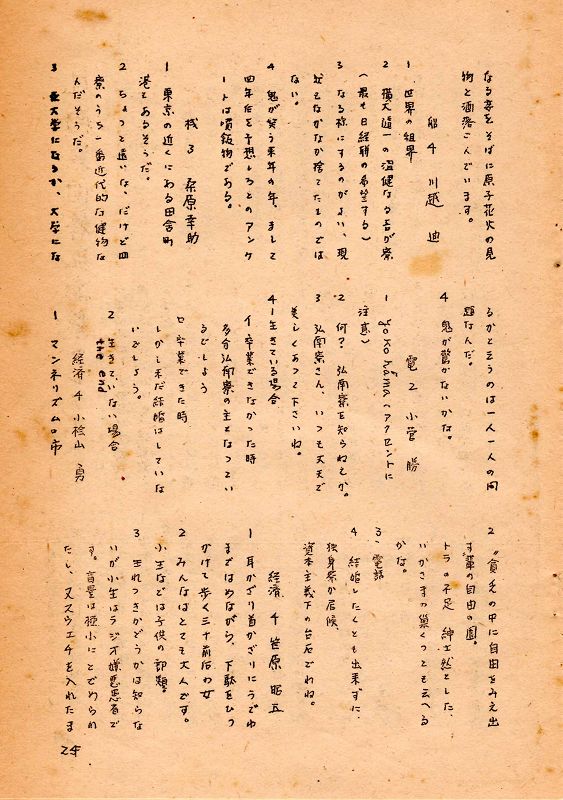 なる亭をそばに原子花火の見
物と洒落こんでいます。
船4 川越 迪
1 世界の租界
2 猶大道一の温健なる吾が寮
（最も日経聯の希望する）
3 なる様にするのがよい、現
状もなかなか捨てたものでは
ない。
4 鬼が笑う来年の年、まして
四年后を予想しろとのアンケ
ートは噴飯物である。
機3 桑原幸助
1 東京の近くにある田舎町
港とあるそうだ。
2 ちょっと遠いな、だけど四
寮のうち一番近代的な健物な
んだそうだ。
3 大学になるか、大学にな
るかと云うのは一人一人の問
題なんだ。
4 鬼が驚かないかな。
電2 小菅 勝
1 Yokohama（アクセントに
注意）
2 何？ 弘南寮を知らねえか。
3 弘南寮さん、いつも丈夫で
美しくあって下さいね。
4 1生きている場合
イ 卒業できなかった時
多分弘南寮の主となってい
るでしょう
ロ 卒業できた時
しかし未だ結婚はしていな
いでしょう。
2 生きていない場合
the end
経済4 小桧山 勇
1 マンネリズムの市
2 〝貧乏の中に自由をみえ出
す輩の自由の園。
トラの不足 紳士然とした、
いかさまの巣くつとも云へる
かな。
3、電話
4、結婚したくとも出来ずに、
独身寮か居候、
資本主義下の台石でわね。
経済 4 笹原 昭五
1 耳かざり首かざりにうでわ
まではめながら、下駄をひっ
かけて歩く三十前后の女
2 みんなはとても大人です。
小生などは子供の部類。
3 生れつきかどうかは知らな
いが小生はラジオ嫌悪患者で
す。音量は極小にとどめられ
たし、又スウエチを入れたま
24